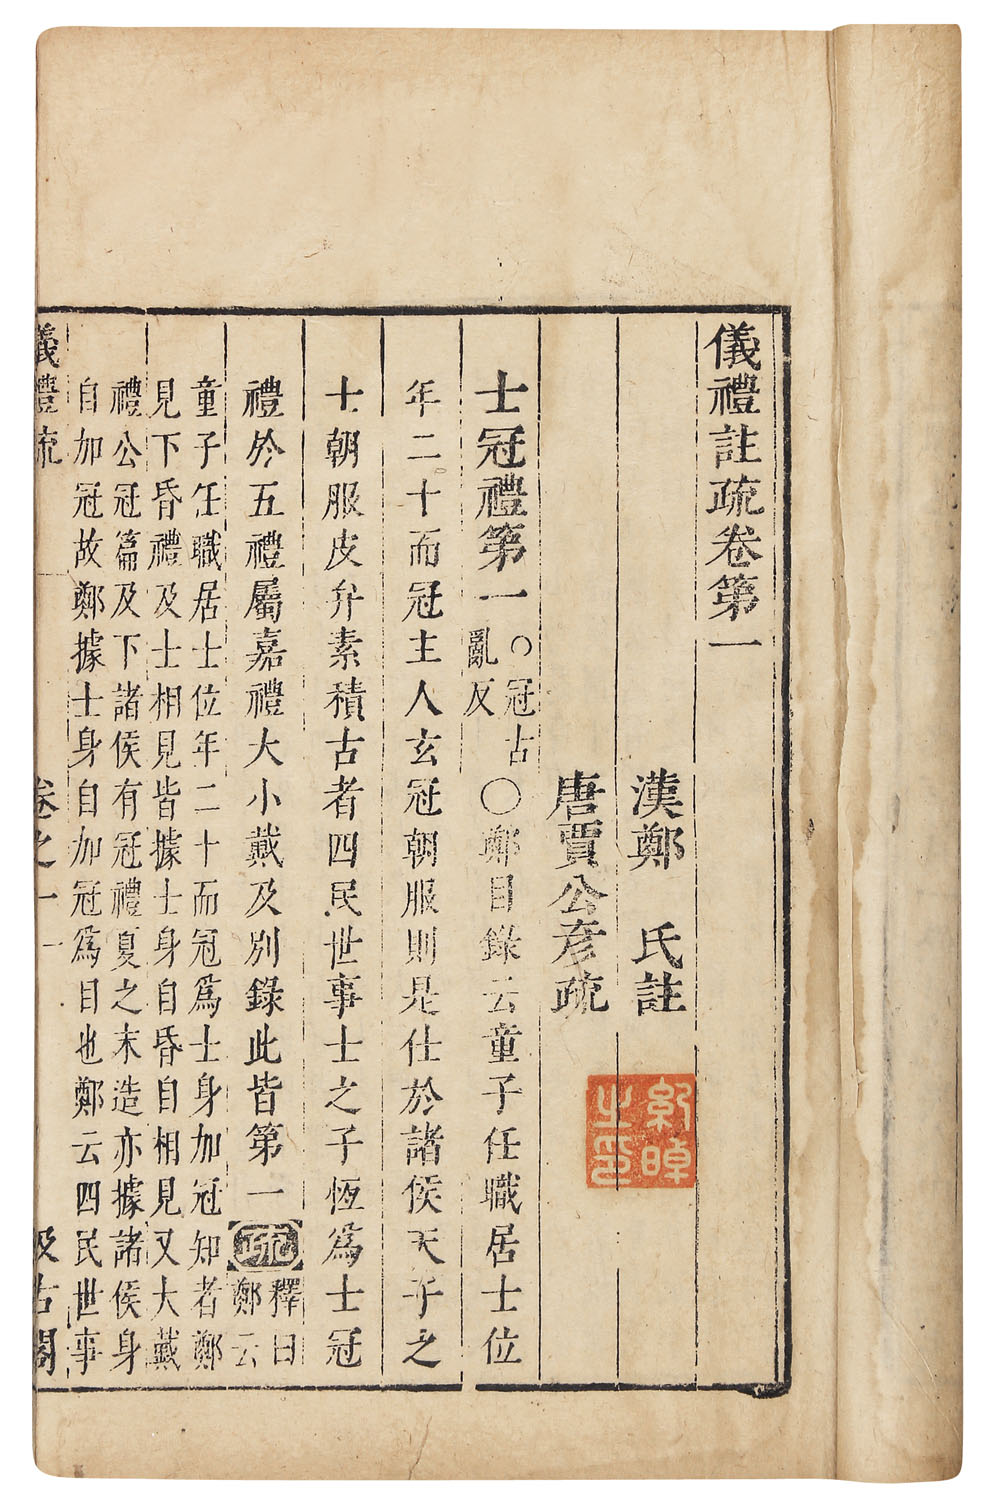 儀禮註疏卷第一
漢鄭 氏註
唐賈公彥疏
士冠禮第一
○冠古
亂反
○鄭目錄云童子任職居士位
年二十而冠主人玄冠朝服則是仕於諸侯天子之
士朝服皮弁素積古者四民世事士之子恆為士冠
禮於五禮屬嘉禮大小戴及別錄此皆第一
疏
釋曰
鄭云
童子任職居士位年二十而冠為士身加冠知者鄭
見下昏禮及士相見皆據士身自昏自相見又大戴
禮公冠篇及下諸侯有冠禮夏之末造亦據諸侯身
自加冠故鄭據士身自加冠為目也鄭云四民世事
儀禮疏 卷之一 一 汲古閣